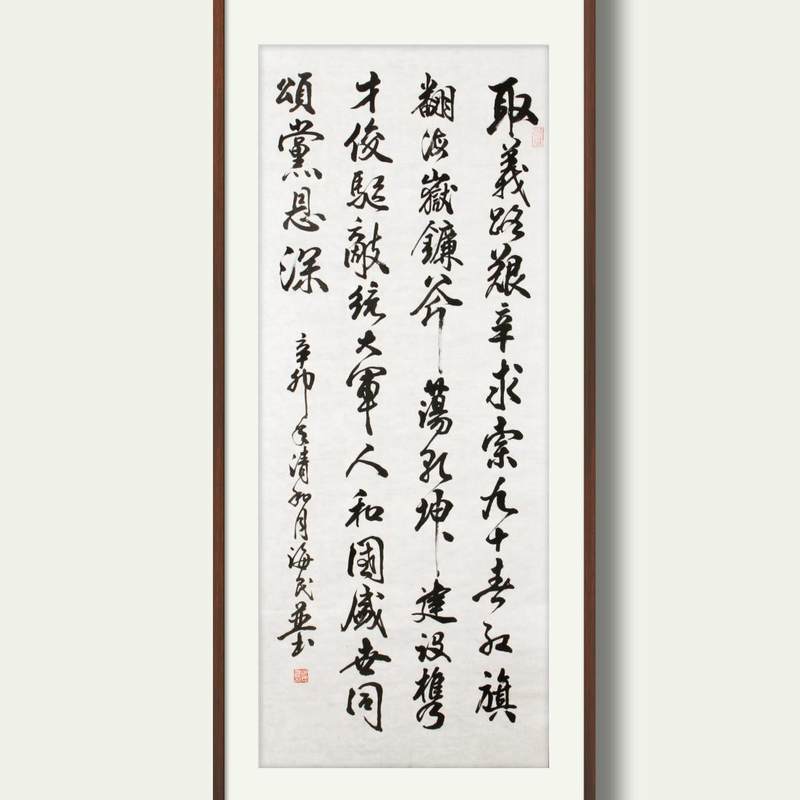 取義路艱辛求索九十春紅旗
翻海嶽鐮斧蕩乾坤建設攜
才俊駆敵統大軍人和國盛世同
頌黨恩深
辛卯年清和月海民並书